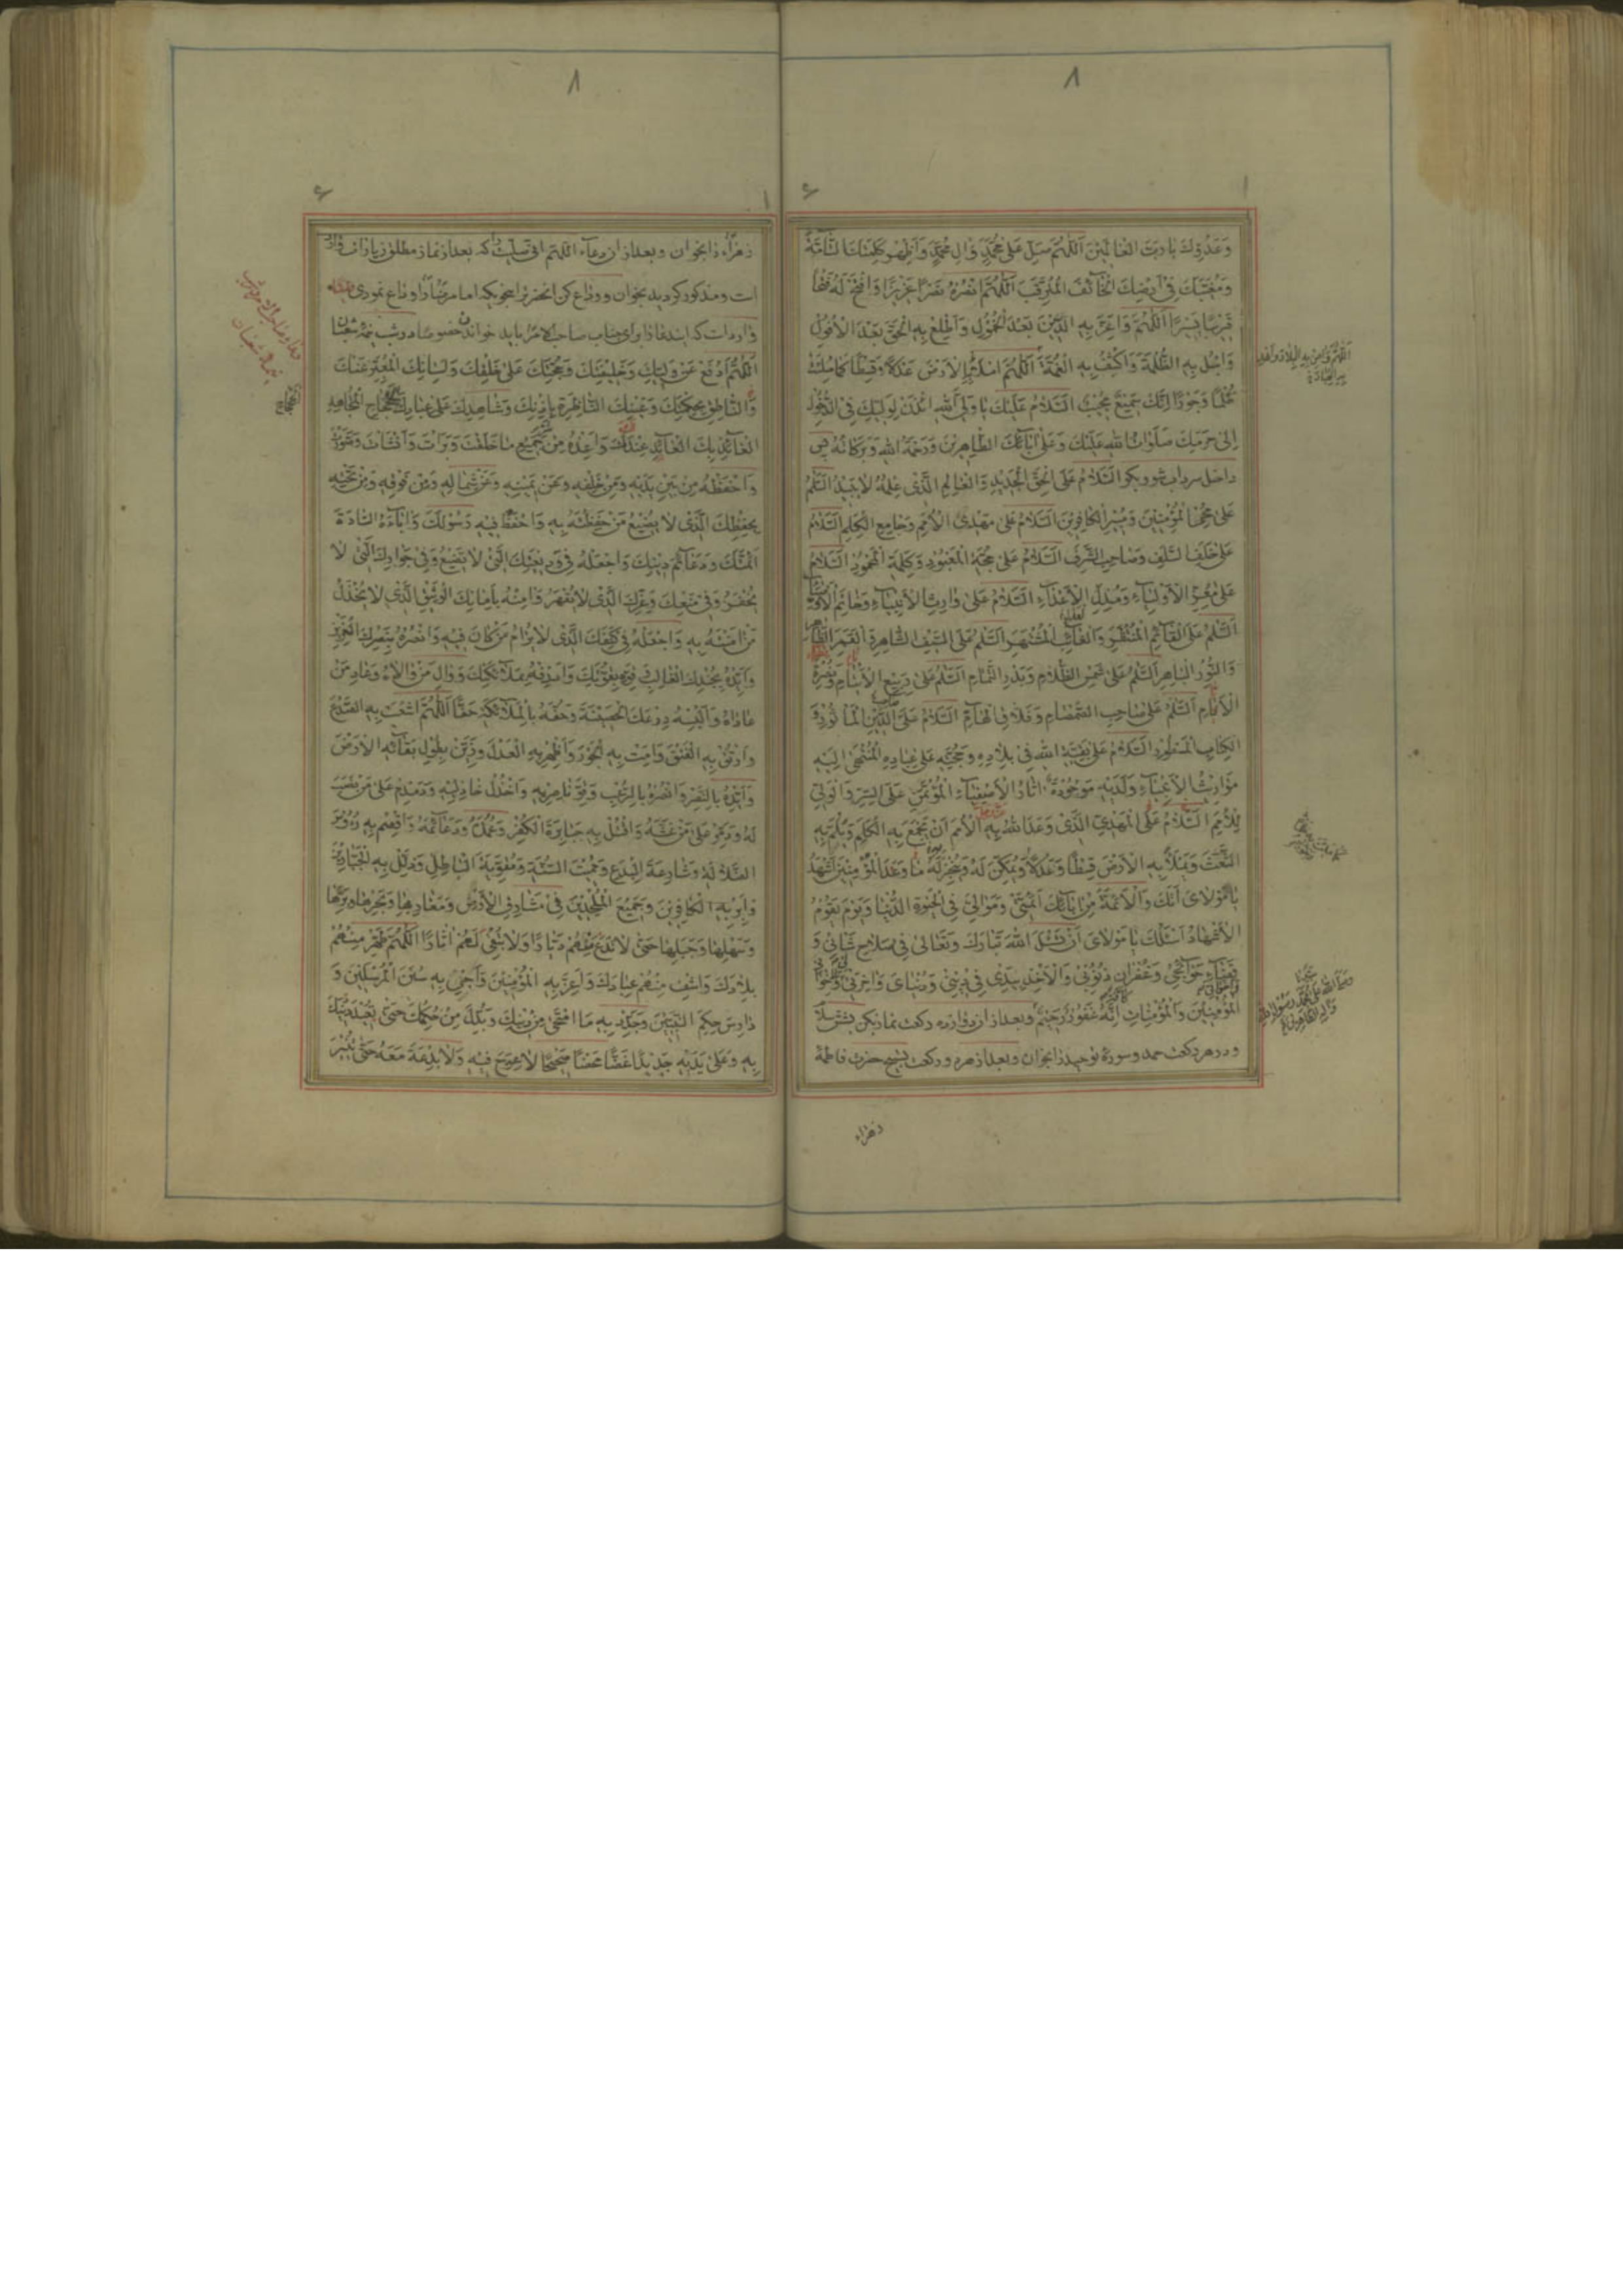 وَعَدُوِّكَ يا رَبَّ الْعالَمينَ اَللّهُمَّ صَلِّ عَلى مُحَمَّدٍ وَالِ مُحَمَّدٍ وَاَظْهِرْ كَلِمَتَكَ التّامَّةَ
وَمُغَيَّبَكَ فى اَرْضِكَ الْخآئِفَ الْمُتَرَقِّبَ اَللّهُمَّ انْصُرْهُ نَصْرًا عَزيزًا وَافْتَحْ لَهُ فَتْحًا
يَسيرًا اَللّهُمَّ وَاَعِزَّ بِهِ الدّينَ بَعْدَ الْخُمُولِ وَاَطْلِعْ بِهِ الْحَقَّ بَعْدَ الْاُفُولِ
وَاجْلُ بِهِ الظُّلْمَةَ وَاكْشِفْ بِهِ الْغُمَّةَ اَللّهُمَّ امْلَأْ بِهِ الْاَرْضَ عَدْلًا وَقِسْطًا كَما مُلِئَتْ
ظُلْمًا وَجَوْرًا اِنَّكَ سَميعٌ مُجيبٌ اَلسَّلامُ عَلَيْكَ يا وَلِىَّ اللهِ ائْذَنْ لِوَلِيِّكَ فِى الدُّخُولِ
اِلى حَرَمِكَ صَلَواتُ اللهِ عَلَيْكَ وَعَلى ابآئِكَ الطّاهِرينَ وَرَحْمَةُ اللهِ وَبَرَكاتُهُ پس
داخل سرداب شو و بكو اَلسَّلامُ عَلَى الْحَقِّ الْجَديدِ وَالْعالِمِ الَّذى عِلْمُهُ لا يَبيدُ اَلسَّلمُ
عَلى مُحْيِى الْمُؤْمِنينَ وَمُبيرِ الْكافِرينَ اَلسَّلامُ عَلى مَهْدِىِّ الْاُمَمِ وَجامِعِ الْكَلِمِ اَلسَّلامُ
عَلى خَلَفِ السَّلَفِ وَصاحِبِ الشَّرَفِ اَلسَّلامُ عَلى حُجَّةِ الْمَعْبُودِ وَكَلِمَةِ الْمَحْمُودِ اَلسَّلامُ
عَلى مُعِزِّ الْاَوْلِيآءِ وَمُذِلِّ الْاَعْدآءِ اَلسَّلامُ عَلى وارِثِ الْاَنْبِيآءِ وَخاتَمِ الْاَوْصِيآءِ
اَلسَّلمُ عَلَى الْقآئِمِ الْمُنْتَظَرِ وَالْغآئِبِ الْمُشْتَهَرِ اَلسَّلمُ عَلَى السَّيْفِ الشّاهِرِ الْقَمَرِ الظّاهِرِ
وَالنُّورِ الْباهِرِ اَلسَّلمُ عَلى شَمْسِ الظَّلامِ وَبَدْرِ التَّمامِ اَلسَّلمُ عَلى رَبيعِ الْاَيْتامِ وَنَضْرَةِ
الْاَيّامِ اَلسَّلمُ عَلى صاحِبِ الصَّمْصامِ وَفَلّاقِ الْهامِ اَلسَّلامُ عَلَى الدّينِ الْمَأثُورِ وَ
الْكِتابِ الْمَسْطُورِ اَلسَّلامُ عَلى بَقِيَّةِ اللهِ فى بِلادِهِ وَحُجَّتِهِ عَلى عِبادِهِ الْمُنْتَهى اِلَيْهِ
مَواريثُ الْاَنْبِيآءِ وَلَدَيْهِ مَوْجُودَةٌ اثارُ الْاَصْفِيآءِ الْمُؤْتَمَنِ عَلَى السِّرِّ وَالْوَلِىِّ
لِلْاَمْرِ اَلسَّلامُ عَلَى الْمَهْدِىِّ الَّذى وَعَدَ اللهُ بِهِ الْاُمَمَ اَنْ يَجْمَعَ بِهِ الْكَلِمَ وَيَلُمَّ بِهِ
الشَّعَثَ وَيَمْلَأَ بِهِ الْاَرْضَ قِسْطًا وَعَدْلًا وَيُمَكِّنَ لَهُ وَيُنْجِزَ لَهُ ما وَعَدَ الْمُؤْمِنينَ اَشْهَدُ
يا مَوْلاىَ اَنَّكَ وَالْاَئِمَّةَ مِنْ ابآئِكَ اَئِمَّتى وَمَوالِىَّ فِى الْحَيوةِ الدُّنْيا وَيَوْمَ يَقُومُ
الْاَشْهادُ اَسْئَلُكَ يا مَوْلاىَ اَنْ تَسْئَلَ اللهَ تَبارَكَ وَتَعالى فى صَلاحِ شَأنى وَ
قَضآءِ حَوآئِجى وَغُفْرانِ ذُنُوبى وَالْاَخْذِ بِيَدى فى دينى وَدُنْياىَ وَاخِرَتى
الْمُؤْمِنينَ وَالْمُؤْمِناتِ اِنَّهُ غَفُورٌ رَحيمٌ وبعد از ان دوازده ركعت نماز بكن
ودر هر ركعت حمد وسورۀ توحيد را بخوان وبعد از هر دو ركعت تسبيح حضرت فاطمۀ
زهراء
زهرآء را بخوان وبعد از ان دعآء اللهم كه بعد از نماز مطلق زيارات
است ومذكور كرديد بخوان ووداع كن
وارد است كه اين دعا را براى جناب صاحب الامر بايد خواند خصوصا در شب نيمۀ شعبان
اَللّهُمَّ ادْفَعْ عَنْ وَلِيِّكَ وَخَليفَتِكَ وَحُجَّتِكَ عَلى خَلْقِكَ وَلِسانِكَ الْمُعَبِّرِ عَنْكَ
وَالنّاطِقِ بِحِكْمَتِكَ وَعَيْنِكَ النّاظِرَةِ بِاِذْنِكَ وَشاهِدِكَ عَلى عِبادِكَ الْجَحْجاحِ الْمُجاهِدِ
الْعآئِذِ بِكَ الْعآئِدِ عِنْدَكَ وَاَعِذْهُ مِنْ جَميعِ ما خَلَقْتَ وَبَرَأتَ وَاَنْشَأتَ وَصَوَّرْتَ
وَاحْفَظْهُ مِنْ بَيْنِ يَدَيْهِ وَمِنْ خَلْفِهِ وَعَنْ يَمينِهِ وَعَنْ شِمالِهِ وَمِنْ فَوْقِهِ وَمِنْ تَحْتِهِ
بِحِفْظِكَ الَّذى لا يَضيعُ مَنْ حَفِظْتَهُ بِهِ وَاحْفَظْ فيهِ رَسُولَكَ وَابآءَهُ السّادَةَ
اَئِمَّتَكَ وَدَعآئِمَ دينِكَ وَاجْعَلْهُ فى وَديعَتِكَ الَّتى لا تَضيعُ وَفى جَوارِكَ الَّذى لا
يُخْفَرُ وَفى مَنْعِكَ وَعِزِّكَ الَّذى لا يُقْهَرُ وَامِنْهُ بِاَمانِكَ الْوَثيقِ الَّذى لا يُخْذَلُ
مَنْ امَنْتَهُ بِهِ وَاجْعَلْهُ فى كَنَفِكَ الَّذى لا يُرامُ مَنْ كانَ فيهِ وَانْصُرْهُ بِنَصْرِكَ الْعَزيزِ
وَاَيِّدْهُ بِجُنْدِكَ الْغالِبِ وَقَوِّهِ بِقُوَّتِكَ وَاَرْدِفْهُ بِمَلآئِكَتِكَ وَوالِ مَنْ والاهُ وَعادِ مَنْ
عاداهُ وَاَلْبِسْهُ دِرْعَكَ الْحَصينَةَ وَحُفَّهُ بِالْمَلآئِكَةِ حَفًّا اَللّهُمَّ اشْعَبْ بِهِ الصَّدْعَ
وَارْتُقْ بِهِ الْفَتْقَ وَاَمِتْ بِهِ الْجَوْرَ وَاَظْهِرْ بِهِ الْعَدْلَ وَزَيِّنْ بِطُولِ بَقآئِهِ الْاَرْضَ
وَاَيِّدْهُ بِالنَّصْرِ وَانْصُرْهُ بِالرُّعْبِ وَقَوِّ ناصِريهِ وَاخْذُلْ خاذِليهِ وَدَمْدِمْ عَلى مَنْ نَصَبَ
لَهُ وَدَمِّرْ عَلى مَنْ غَشَّهُ وَاقْتُلْ بِهِ جَبابِرَةَ الْكُفْرِ وَعُمُدَهُ وَدَعآئِمَهُ وَاقْصِمْ بِهِ رُؤُوسَ
الضَّلالَةِ وَشارِعَةَ الْبِدَعِ وَمُميتَةَ السُّنَّةِ وَمُقَوِّيَةَ الْباطِلِ وَذَلِّلْ بِهِ الْجَبّارينَ
وَاَبِرْ بِهِ الْكافِرينَ وَجَميعَ الْمُلْحِدينَ فى مَشارِقِ الْاَرْضِ وَمَغارِبِها وَبَحْرِها وَبَرِّها
وَسَهْلِها وَجَبَلِها حَتّى لا تَدَعَ مِنْهُمْ دَيّارًا وَلا تُبْقِىَ لَهُمْ اثارًا اَللّهُمَّ طَهِّرْ مِنْهُمْ
بِلادَكَ وَاشْفِ مِنْهُمْ عِبادَكَ وَاَعِزَّ بِهِ الْمُؤْمِنينَ وَاَحْىِ بِهِ سُنَنَ الْمُرْسَلينَ وَ
دارِسَ حِكَمِ النَّبِيّينَ وَجَدِّدْ بِهِ مَا امْتَحى مِنْ دينِكَ وَبُدِّلَ مِنْ حُكْمِكَ حَتّى تُعيدَ دينَكَ
بِهِ وَعَلى يَدَيْهِ جَديدًا غَضًّا مَحْضًا صَحيحًا لا عِوَجَ فيهِ وَلا بِدْعَةَ مَعَهُ حَتّى تُنيرَ